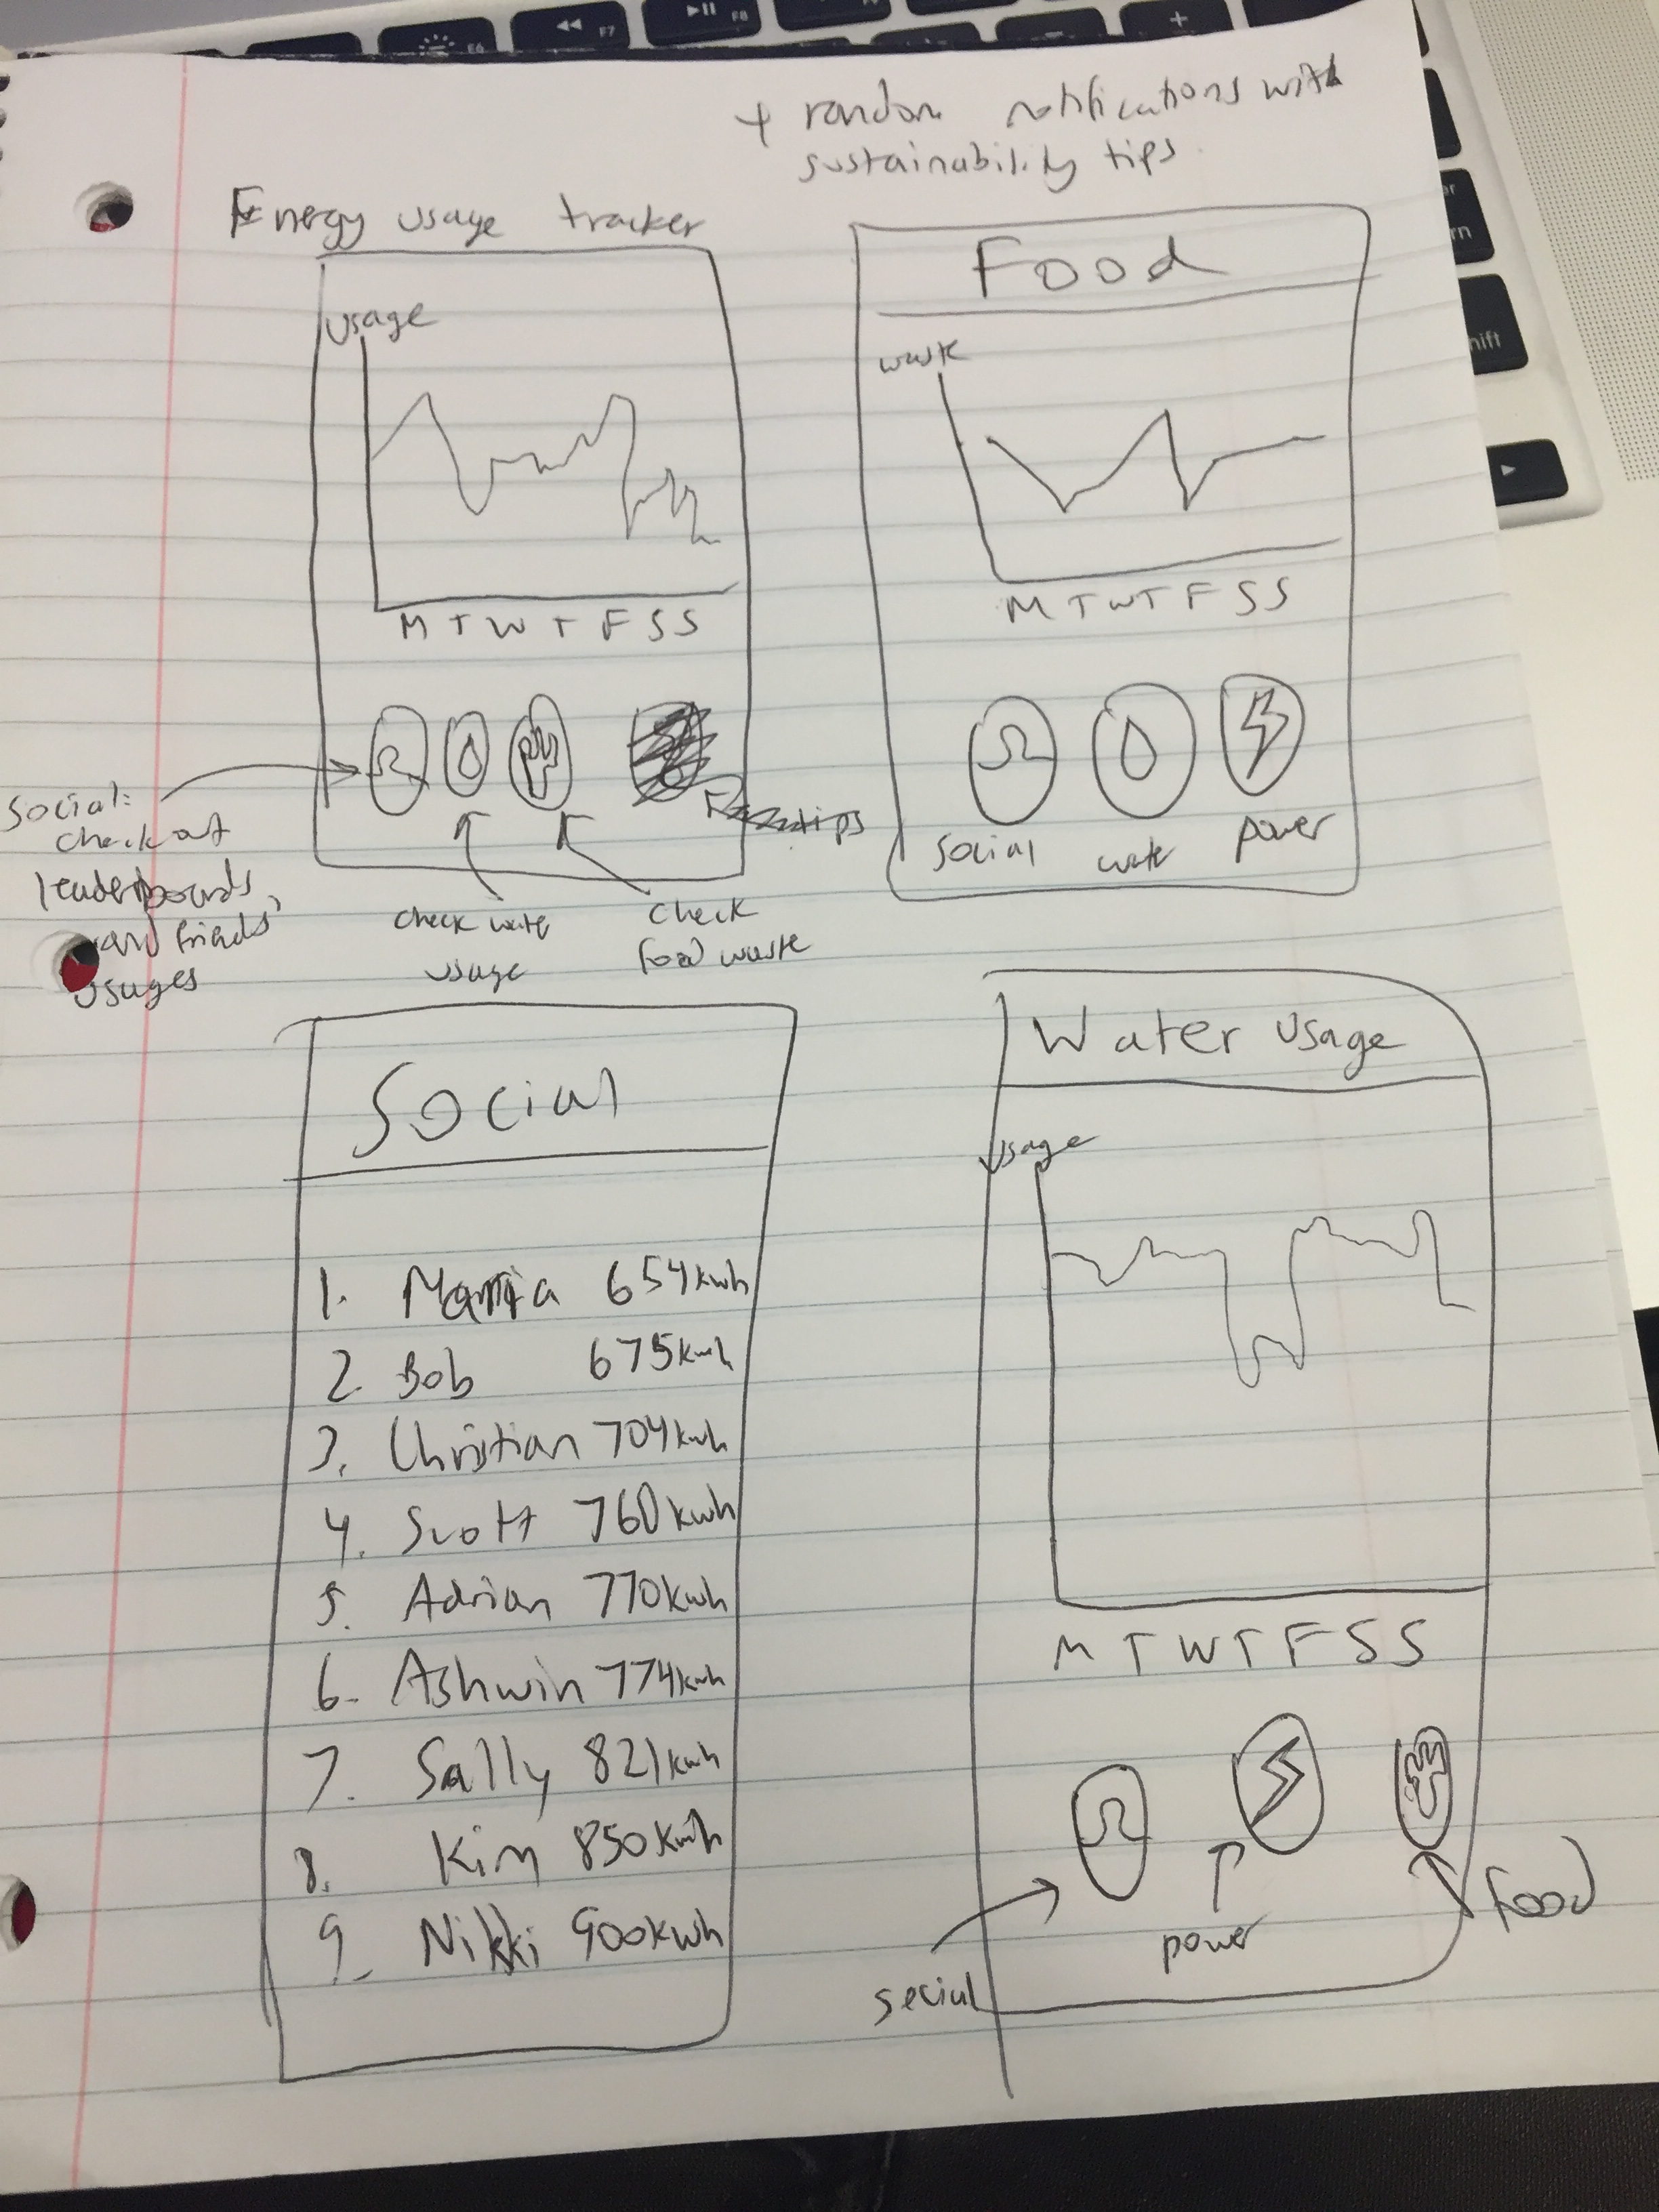 + random notifications with
sustainability tips
Energy usage tracker
usage
M T W T F S S
Social:
check out
leaderboards
and friends'
usages
check water
usage
check
food waste
tips
Food
waste
M T W T F S S
social water power
Social
1. Marria 654kwh
2. Bob 675kwh
3. Christian 704kwh
4. Scott 760kwh
5. Adrian 770kwh
6. Ashwin 774kwh
7. Sally 821kwh
8. Kim 850kwh
9. Nikki 900kwh
Water usage
usage
M T W T F S S
social
power
food
F6
F7
F8
+
shift